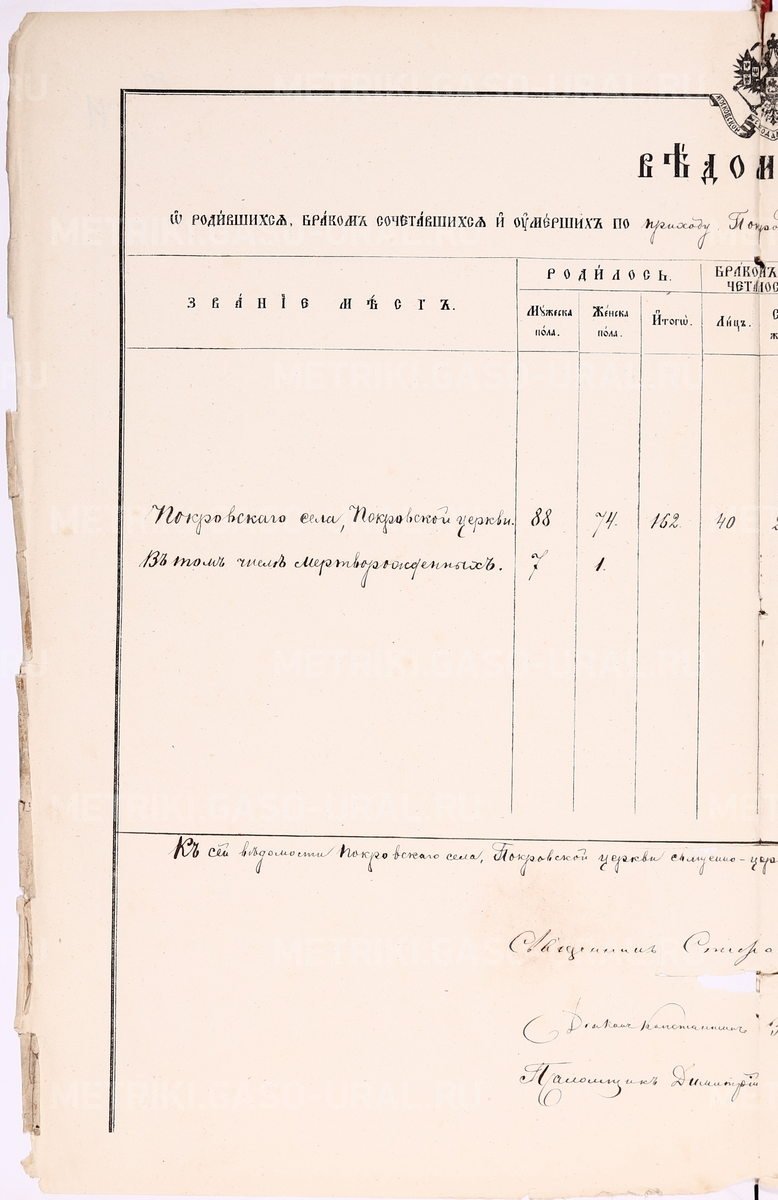 ВѢДОМ
Ѿ РОДИ́ВШИХСѦ, БРА́КОМЪ СОЧЕТА́ВШИХСѦ И҆ ОУ҆МЕ́РШИХЪ ПО приходу Покро
ЗВА́НІЕ МѢ́СТЪ.
РОДИ́ЛОСЬ.
БРА́КОМЪ
ЧЕТА́ЛОС
Мꙋ́жеска
по́ла.
Же́нска
по́ла.
И҆тогѡ̀.
Ли́цъ.
Покровскаго села, Покровской церкви. 88 74. 162 40
Въ томъ числѣ мертворожденныхъ. 7 1.
Къ сей вѣдомости Покровскаго села, Покровской церкви священно-цер
Священникъ
Дьяконъ Константинъ
Псаломщикъ Димитрій
METRIKI.GASO-URAL.RU